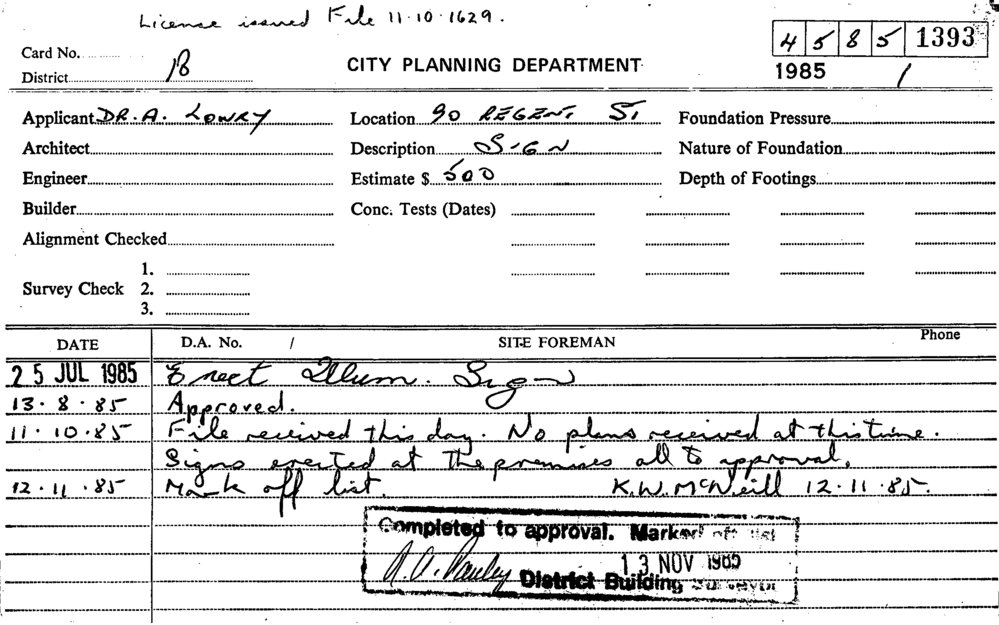 License issued File 11.10.1629.
Card No.
District B
CITY PLANNING DEPARTMENT
4 5 8 5 1393
1985 /
Applicant DR. A. LOWRY
Location 90 REGENT ST
Foundation Pressure
Architect
Description SIGN
Nature of Foundation
Engineer
Estimate $ 500
Depth of Footings
Builder
Conc. Tests (Dates)
Alignment Checked
1.
Survey Check 2.
3.
DATE D.A. No. / SITE FOREMAN Phone
25 JUL 1985 Erect Illum. Sign
13.8.85 Approved.
11.10.85 File received this day. No plans received at this time.
Signs erected at the premises all to approval.
12.11.85 Mark off list. K.W. McNeill 12.11.85.
Completed to approval. Marked off list
13 NOV 1985
District Building Surveyor